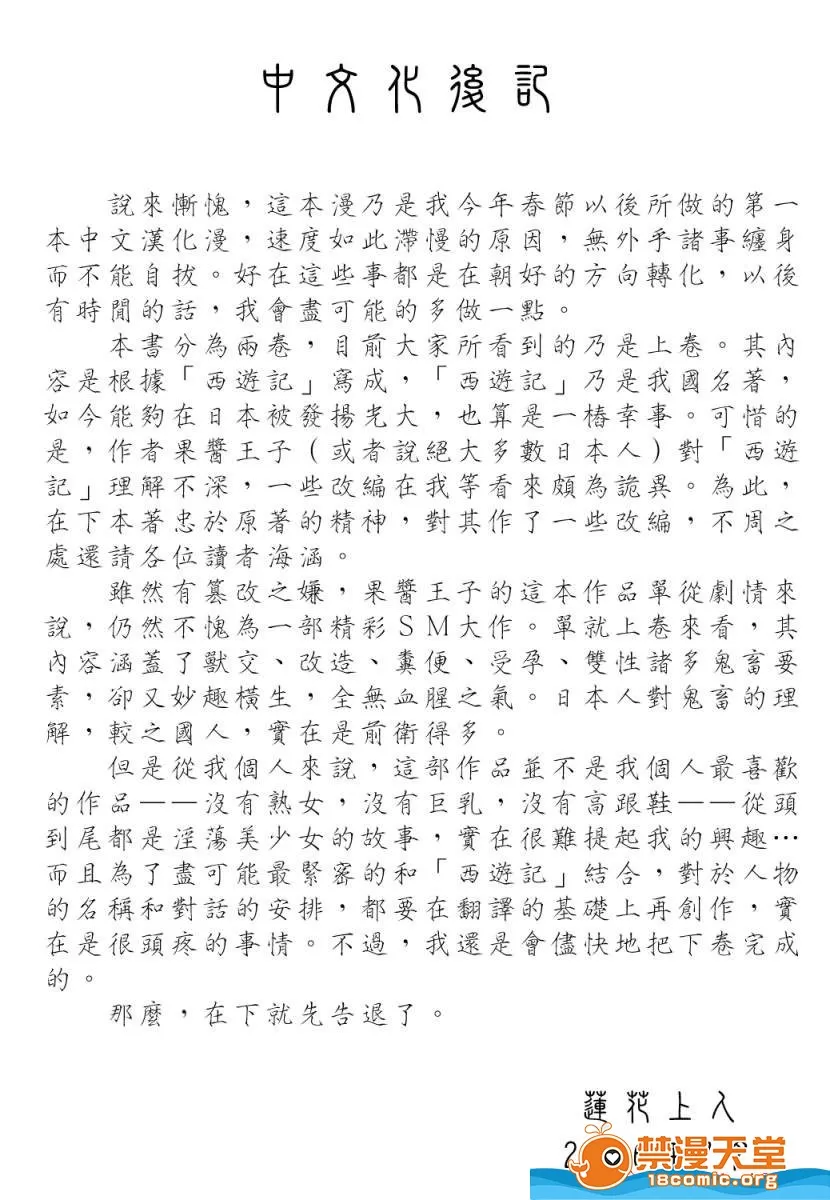 中文化後記
說來慚愧，這本漫乃是我今年春節以後所做的第一
本中文漢化漫，速度如此滯慢的原因，無外乎諸事纏身
而不能自拔。好在這些事都是在朝好的方向轉化，以後
有時閒的話，我會盡可能的多做一點。
本書分為兩卷，目前大家所看到的乃是上卷。其內
容是根據「西遊記」寫成，「西遊記」乃是我國名著，
如今能夠在日本被發揚光大，也算是一樁幸事。可惜的
是，作者果醬王子（或者說絕大多數日本人）對「西遊
記」理解不深，一些改編在我等看來頗為詭異。為此，
在下本著忠於原著的精神，對其作了一些改編，不周之
處還請各位讀者海涵。
雖然有篡改之嫌，果醬王子的這本作品單從劇情來
說，仍然不愧為一部精彩ＳＭ大作。單就上卷來看，其
內容涵蓋了獸交、改造、糞便、受孕、雙性諸多鬼畜要
素，卻又妙趣橫生，全無血腥之氣。日本人對鬼畜的理
解，較之國人，實在是前衛得多。
但是從我個人來說，這部作品並不是我個人最喜歡
的作品——沒有熟女，沒有巨乳，沒有高跟鞋——從頭
到尾都是淫蕩美少女的故事，實在很難提起我的興趣…
而且為了盡可能最緊密的和「西遊記」結合，對於人物
的名稱和對話的安排，都要在翻譯的基礎上再創作，實
在是很頭疼的事情。不過，我還是會儘快地把下卷完成
的。
那麼，在下就先告退了。
蓮花上人
禁漫天堂
18comic.org